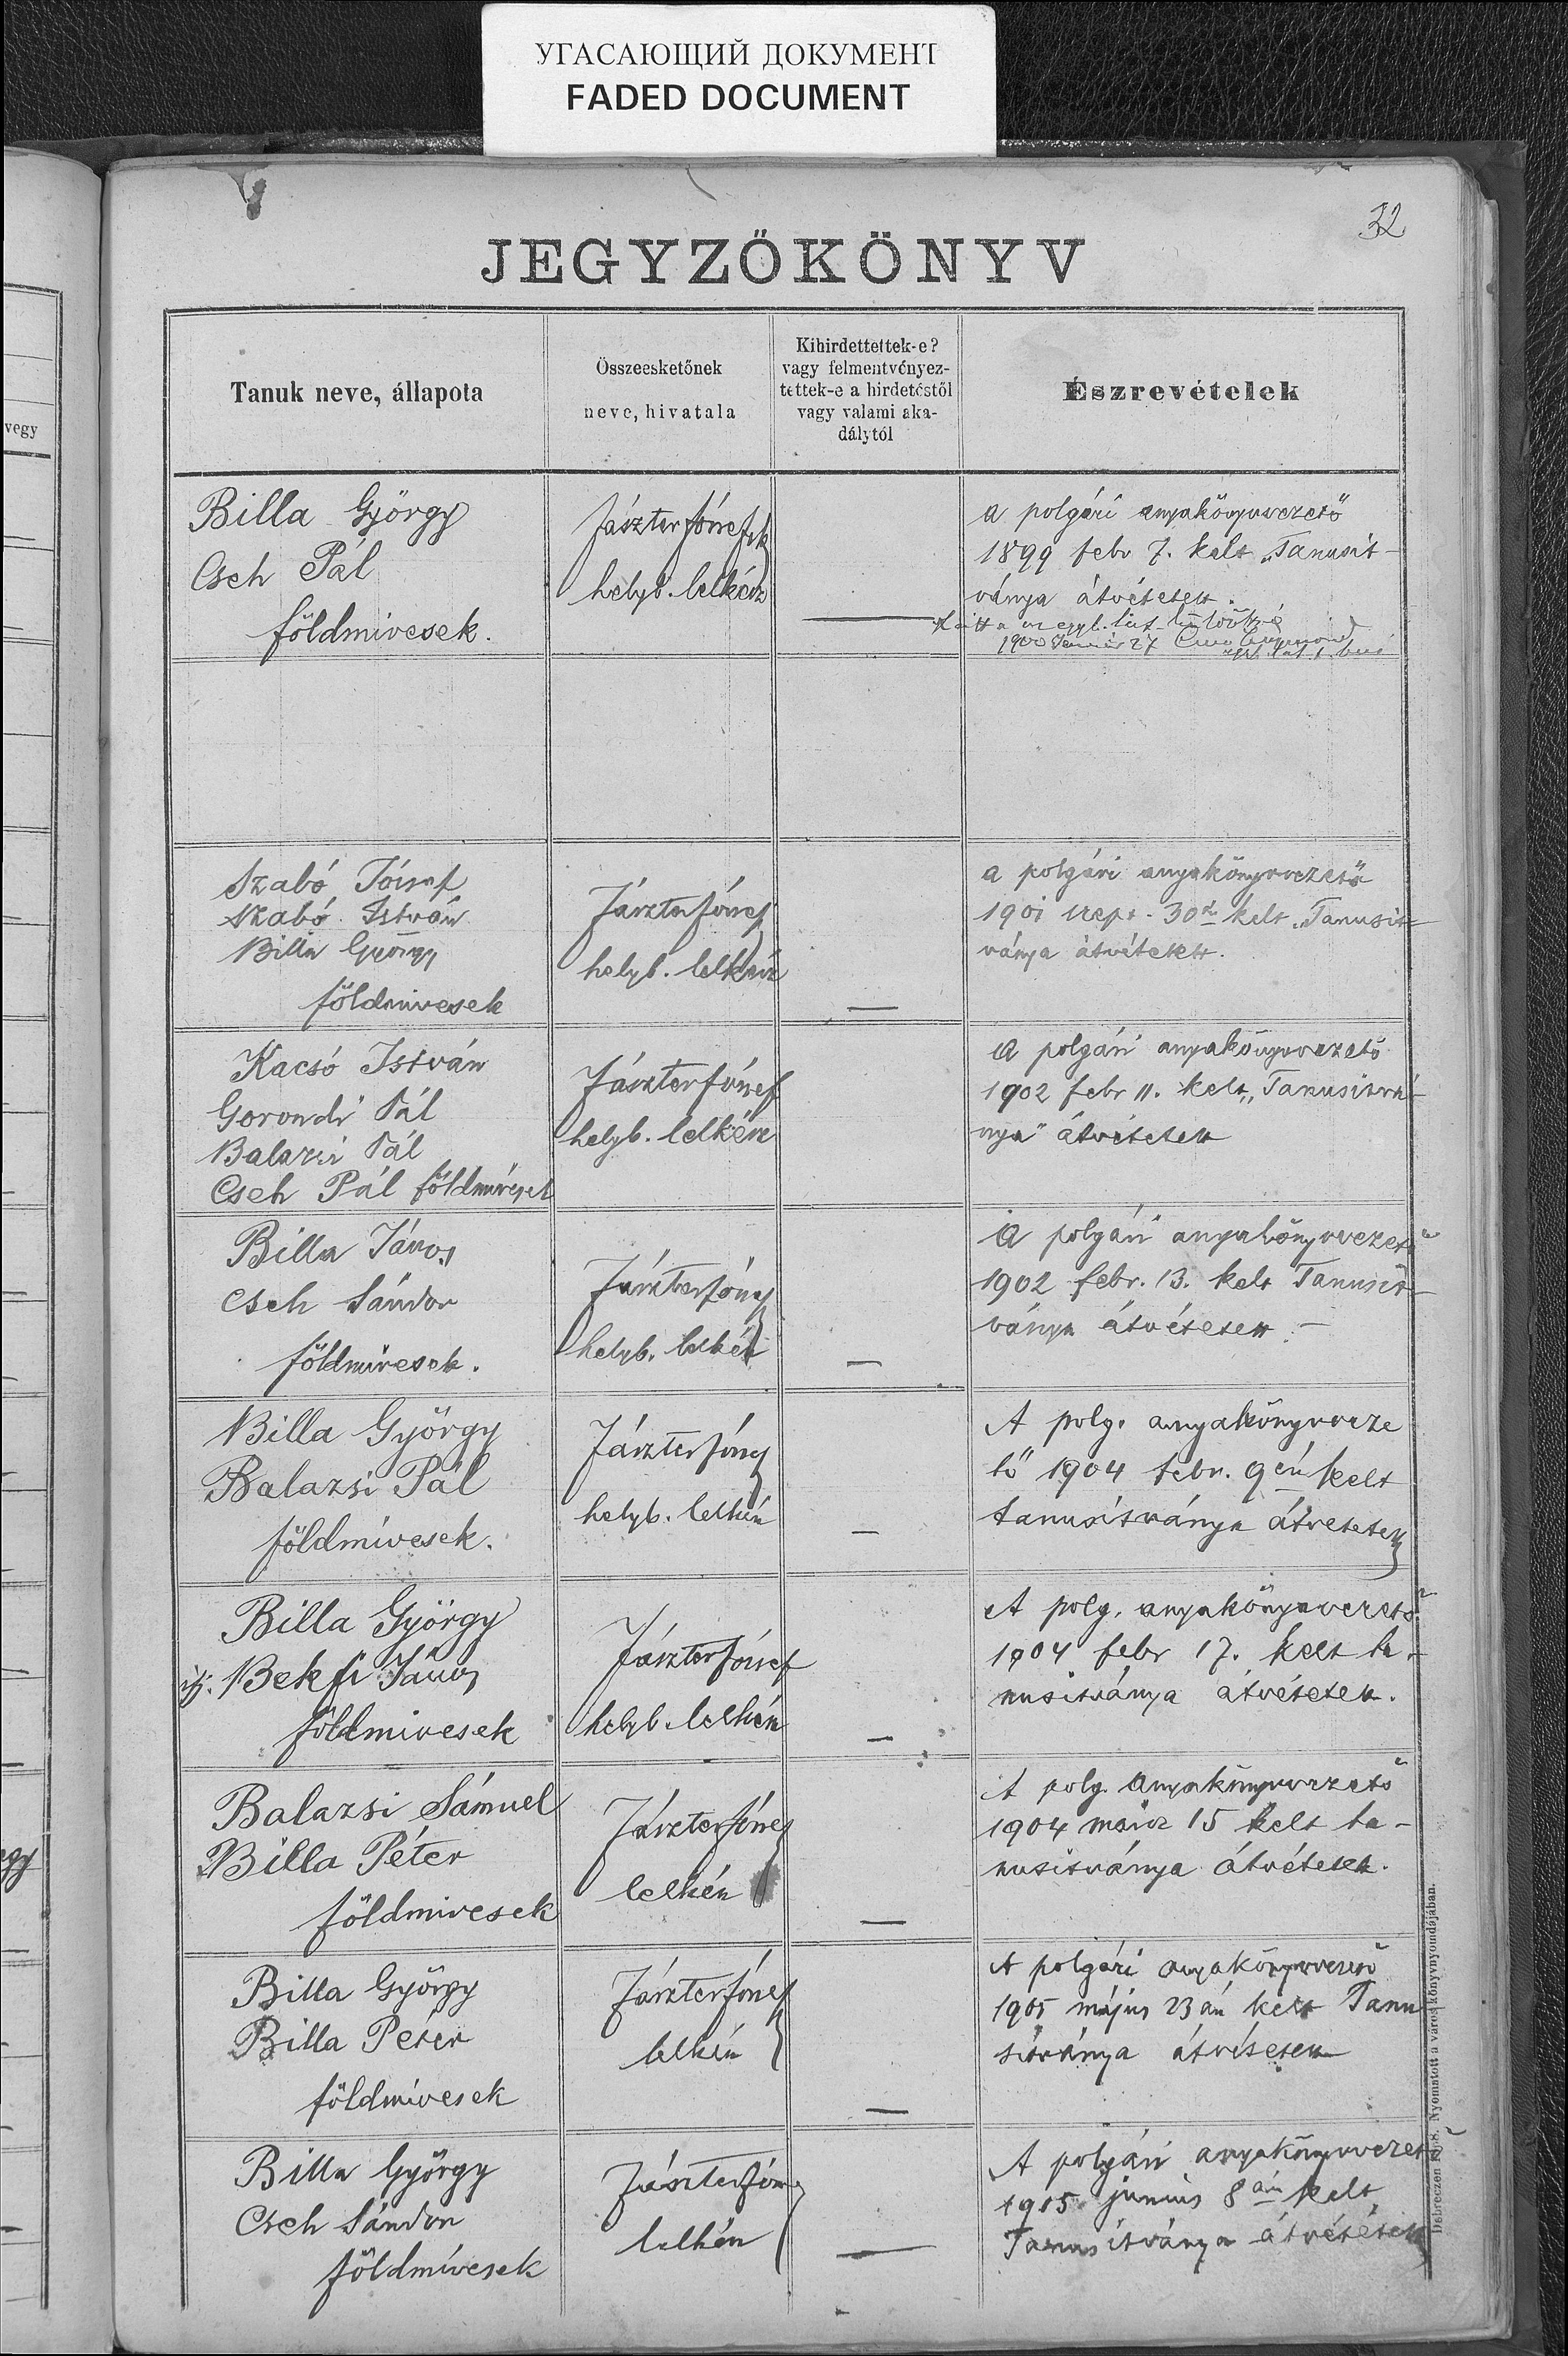 УГАСАЮЩИЙ ДОКУМЕНТ
FADED DOCUMENT
32
JEGYZŐKÖNYV
vegy
Tanuk neve, állapota
Összeesketőnek
neve, hivatala
Kihirdettettek-e?
vagy felmentvényez-
tettek-e a hirdetéstől
vagy valami aka-
dálytól
Észrevételek
Billa György
Cseh Pál
földmivesek.
Jászter József
helyb. lelkész
a polgári anyakönyvvezető
1899 febr 7. kelt „Tanusit-
ványa átvétetett.
1900 Január 27
Szabó József
Szabó István
Billa György
földmivesek
Jászter József
helyb. lelkész
a polgári anyakönyvvezető
1901 szept. 30án kelt „Tanusit-
ványa átvétetett.
Kacsó István
Gorondi Pál
Balazsi Pál
Cseh Pál földmivesek
Jászter József
helyb. lelkész
A polgári anyakönyvvezető
1902 febr 11. kelt „Tanusitvá-
nya" átvétetett
Billa János
Cseh Sándor
földmivesek.
Jászter József
helyb. lelkész
A polgári anyakönyvvezető
1902 febr. 13. kelt Tanusit-
ványa átvétetett. —
Billa György
Balazsi Pál
földmívesek.
Jászter József
helyb. lelkész
A polg. anyakönyvveze
tő 1904 febr. 9én kelt
tanusítványa átvétetett
Billa György
ifj. Bekfi János
földmivesek
Jászter József
helyb. lelkész
A polg. anyakönyvvezető
1904 febr 17. kelt ta-
nusitványa átvétetett.
Balazsi Sámuel
Billa Péter
földmivesek
Jászter József
lelkész
A polg. anyakönyvvezető
1904 márcz 15 kelt ta-
nusitványa átvétetett.
egy
Billa György
Billa Péter
földmívesek
Jászter József
lelkész
A polgári anyakönyvvezető
1905 május 23án kelt Tanu
sitványa átvétetett
Billa György
Cseh Sándor
földmívesek
Jászter József
lelkész
A polgári anyakönyvvezető
1905 június 8án kelt
Tanusítványa átvétetett
Nyomatott a város könyvnyomdájában.